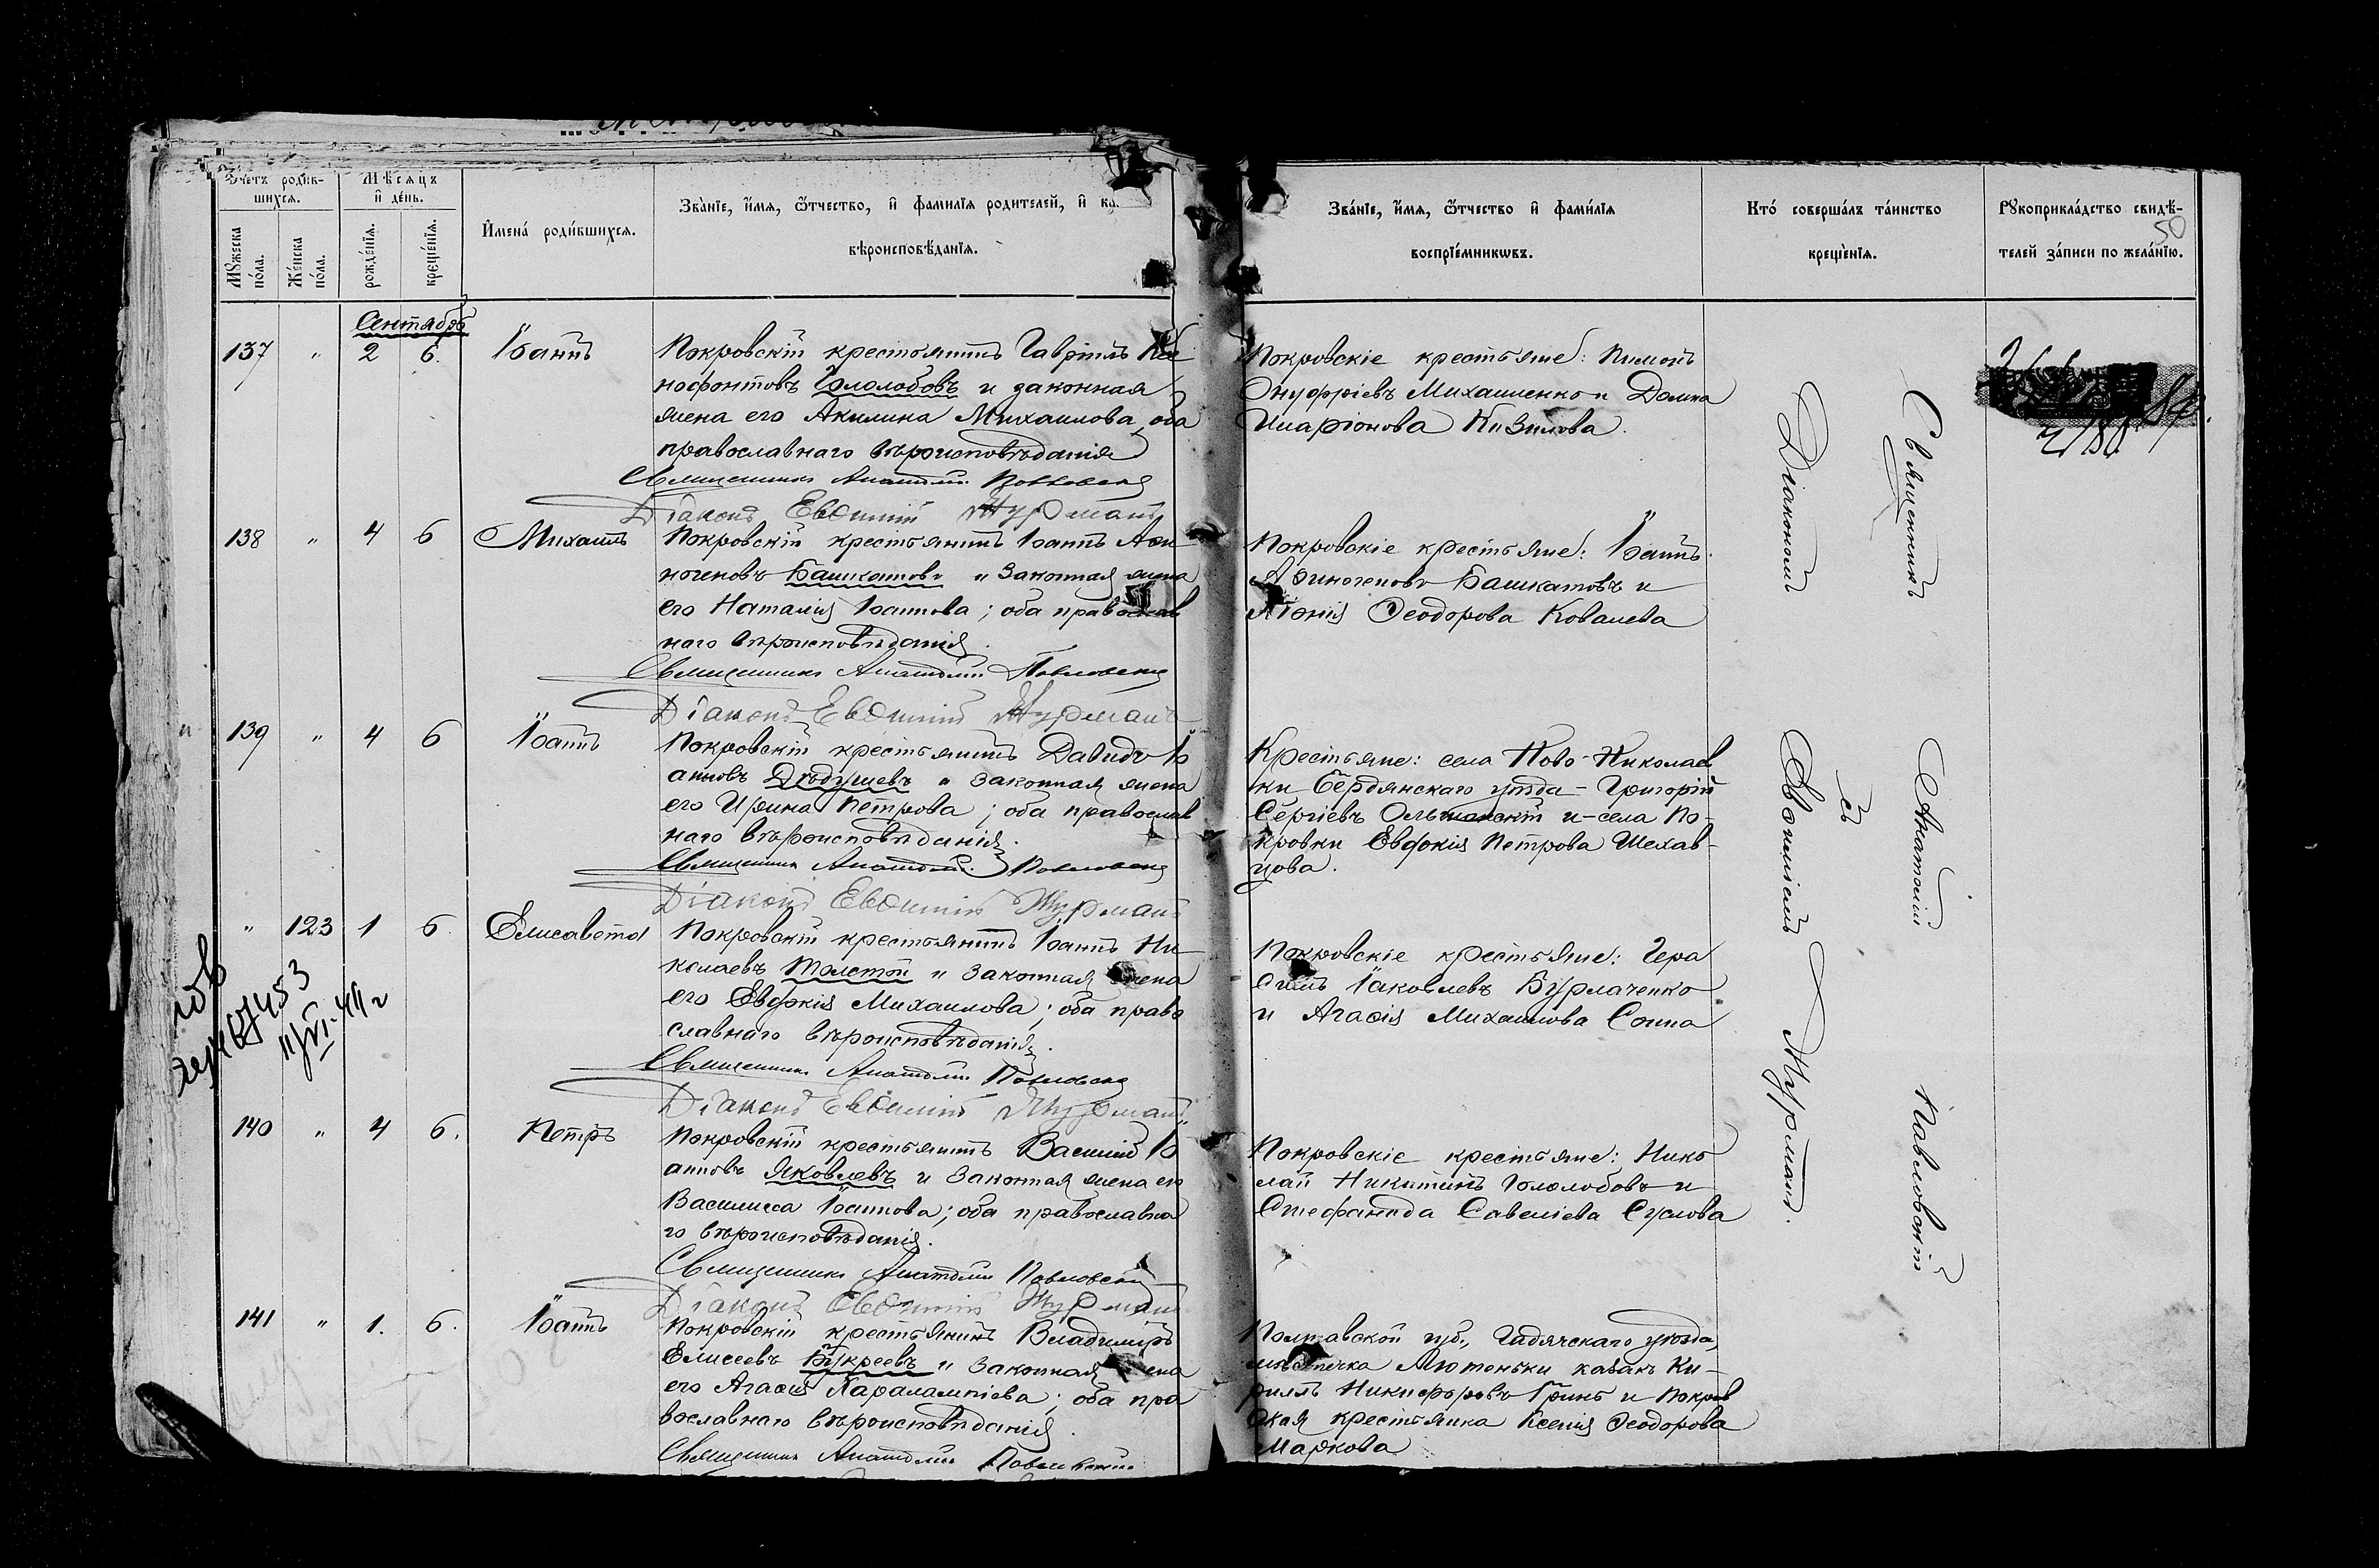 Счетъ родив-
шихся.
Мѣсяцъ
и день.
Мужеска
пола.
Женска
пола.
рожденія.
крещенія.
Имена родившихся.
Званіе, имя, отчество, и фамилія родителей, и
вѣроисповѣданія.
Званіе, имя, отчество и фамилія
воспріемниковъ.
Кто совершалъ таинство
крещенія.
Рукоприкладство свидѣ-
телей записи по желанію.
50
Сентябрь
137 " 2 6. Іоаннъ
Покровскій крестьянинъ Гавріилъ
нофонтовъ Гололобовъ и законная
жена его Акилина Михаилова, оба
православнаго вѣроисповѣданія
Священникъ Анатолій Павловскій
Діаконъ Евѳимій Журманъ
Покровскіе крестьяне: Пимонъ
Онуфріевъ Михайленко и Домна
Иларіонова Кизилова.
138 " 4 6 Михаилъ
Покровскій крестьянинъ Іоаннъ Аѳи
ногеновъ Башкатовъ и законная жена
его Наталія Іоаннова; оба православ
наго вѣроисповѣданія.
Священникъ Анатолій Павловскій
Діаконъ Евѳимій Журманъ
Покровскіе крестьяне: Іоаннъ
Аѳиногеновъ Башкатовъ и
Ѳеодорова Ковалева
139 " 4 6 Іоаннъ
Покровскій крестьянинъ Давидъ Іо
анновъ Дѣдушевъ и законная жена
его Ирина Петрова; оба православ
наго вѣроисповѣданія.
Священникъ Анатолій Павловскій
Діаконъ Евѳимій Журманъ
Крестьяне: села Ново-Николаев
ки Бердянскаго уѣзда - Григорій
Сергіевъ Ольшанскій и - села По-
кровки Евфокія Петрова Шехав-
цова.
" 123 1 6. Елисавета
Покровскій крестьянинъ Іоаннъ Ни
колаевъ Толстой и законная жена
его Евфокія Михаилова; оба право
славнаго вѣроисповѣданія.
Священникъ Анатолій Павловскій
Діаконъ Евѳимій Журманъ
Покровскіе крестьяне: Гера
симъ Іаковлевъ Бурлаченко
и Агаѳія Михаилова Сопна
140 " 4 6. Петръ
Покровскій крестьянинъ Василій Іо
анновъ Яковлевъ и законная жена его
Василисса Іоаннова; оба православна
го вѣроисповѣданія.
Священникъ Анатолій Павловскій
Діаконъ Евѳимій Журманъ
Покровскіе крестьяне: Нико
лай Никитинъ Гололобовъ и
Стефанида Савеліева Суслова
141 " 1. 6. Іоаннъ
Покровскій крестьянинъ Владиміръ
Елисеевъ Букреевъ и законная жена
его Агаѳія Харалампіева; оба пра
вославнаго вѣроисповѣданія.
Священникъ Анатолій Павловскій
Полтавской губ., Гадячскаго уѣзда,
мѣстечка Лютеньки казакъ Ки-
риллъ Никифоровъ Гринь и покров
ская крестьянка Ксенія Ѳеодорова
Маркова
Священникъ Анатолій Павловскій
съ
Діакономъ Евѳиміемъ Журманъ.